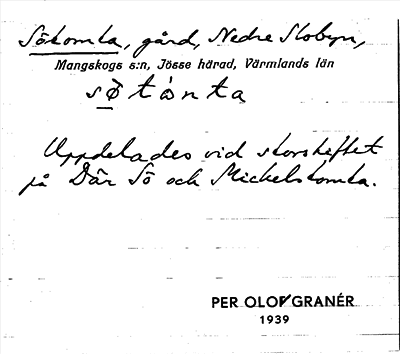 Sötomta, gård, Nedre Slobyn,
Mangskogs s:n, Jösse härad, Värmlands län
sö̀tómta
Uppdelades vid storskiftet
på Där Sö och Mickelstomta.
PER OLOF GRANÉR
1939